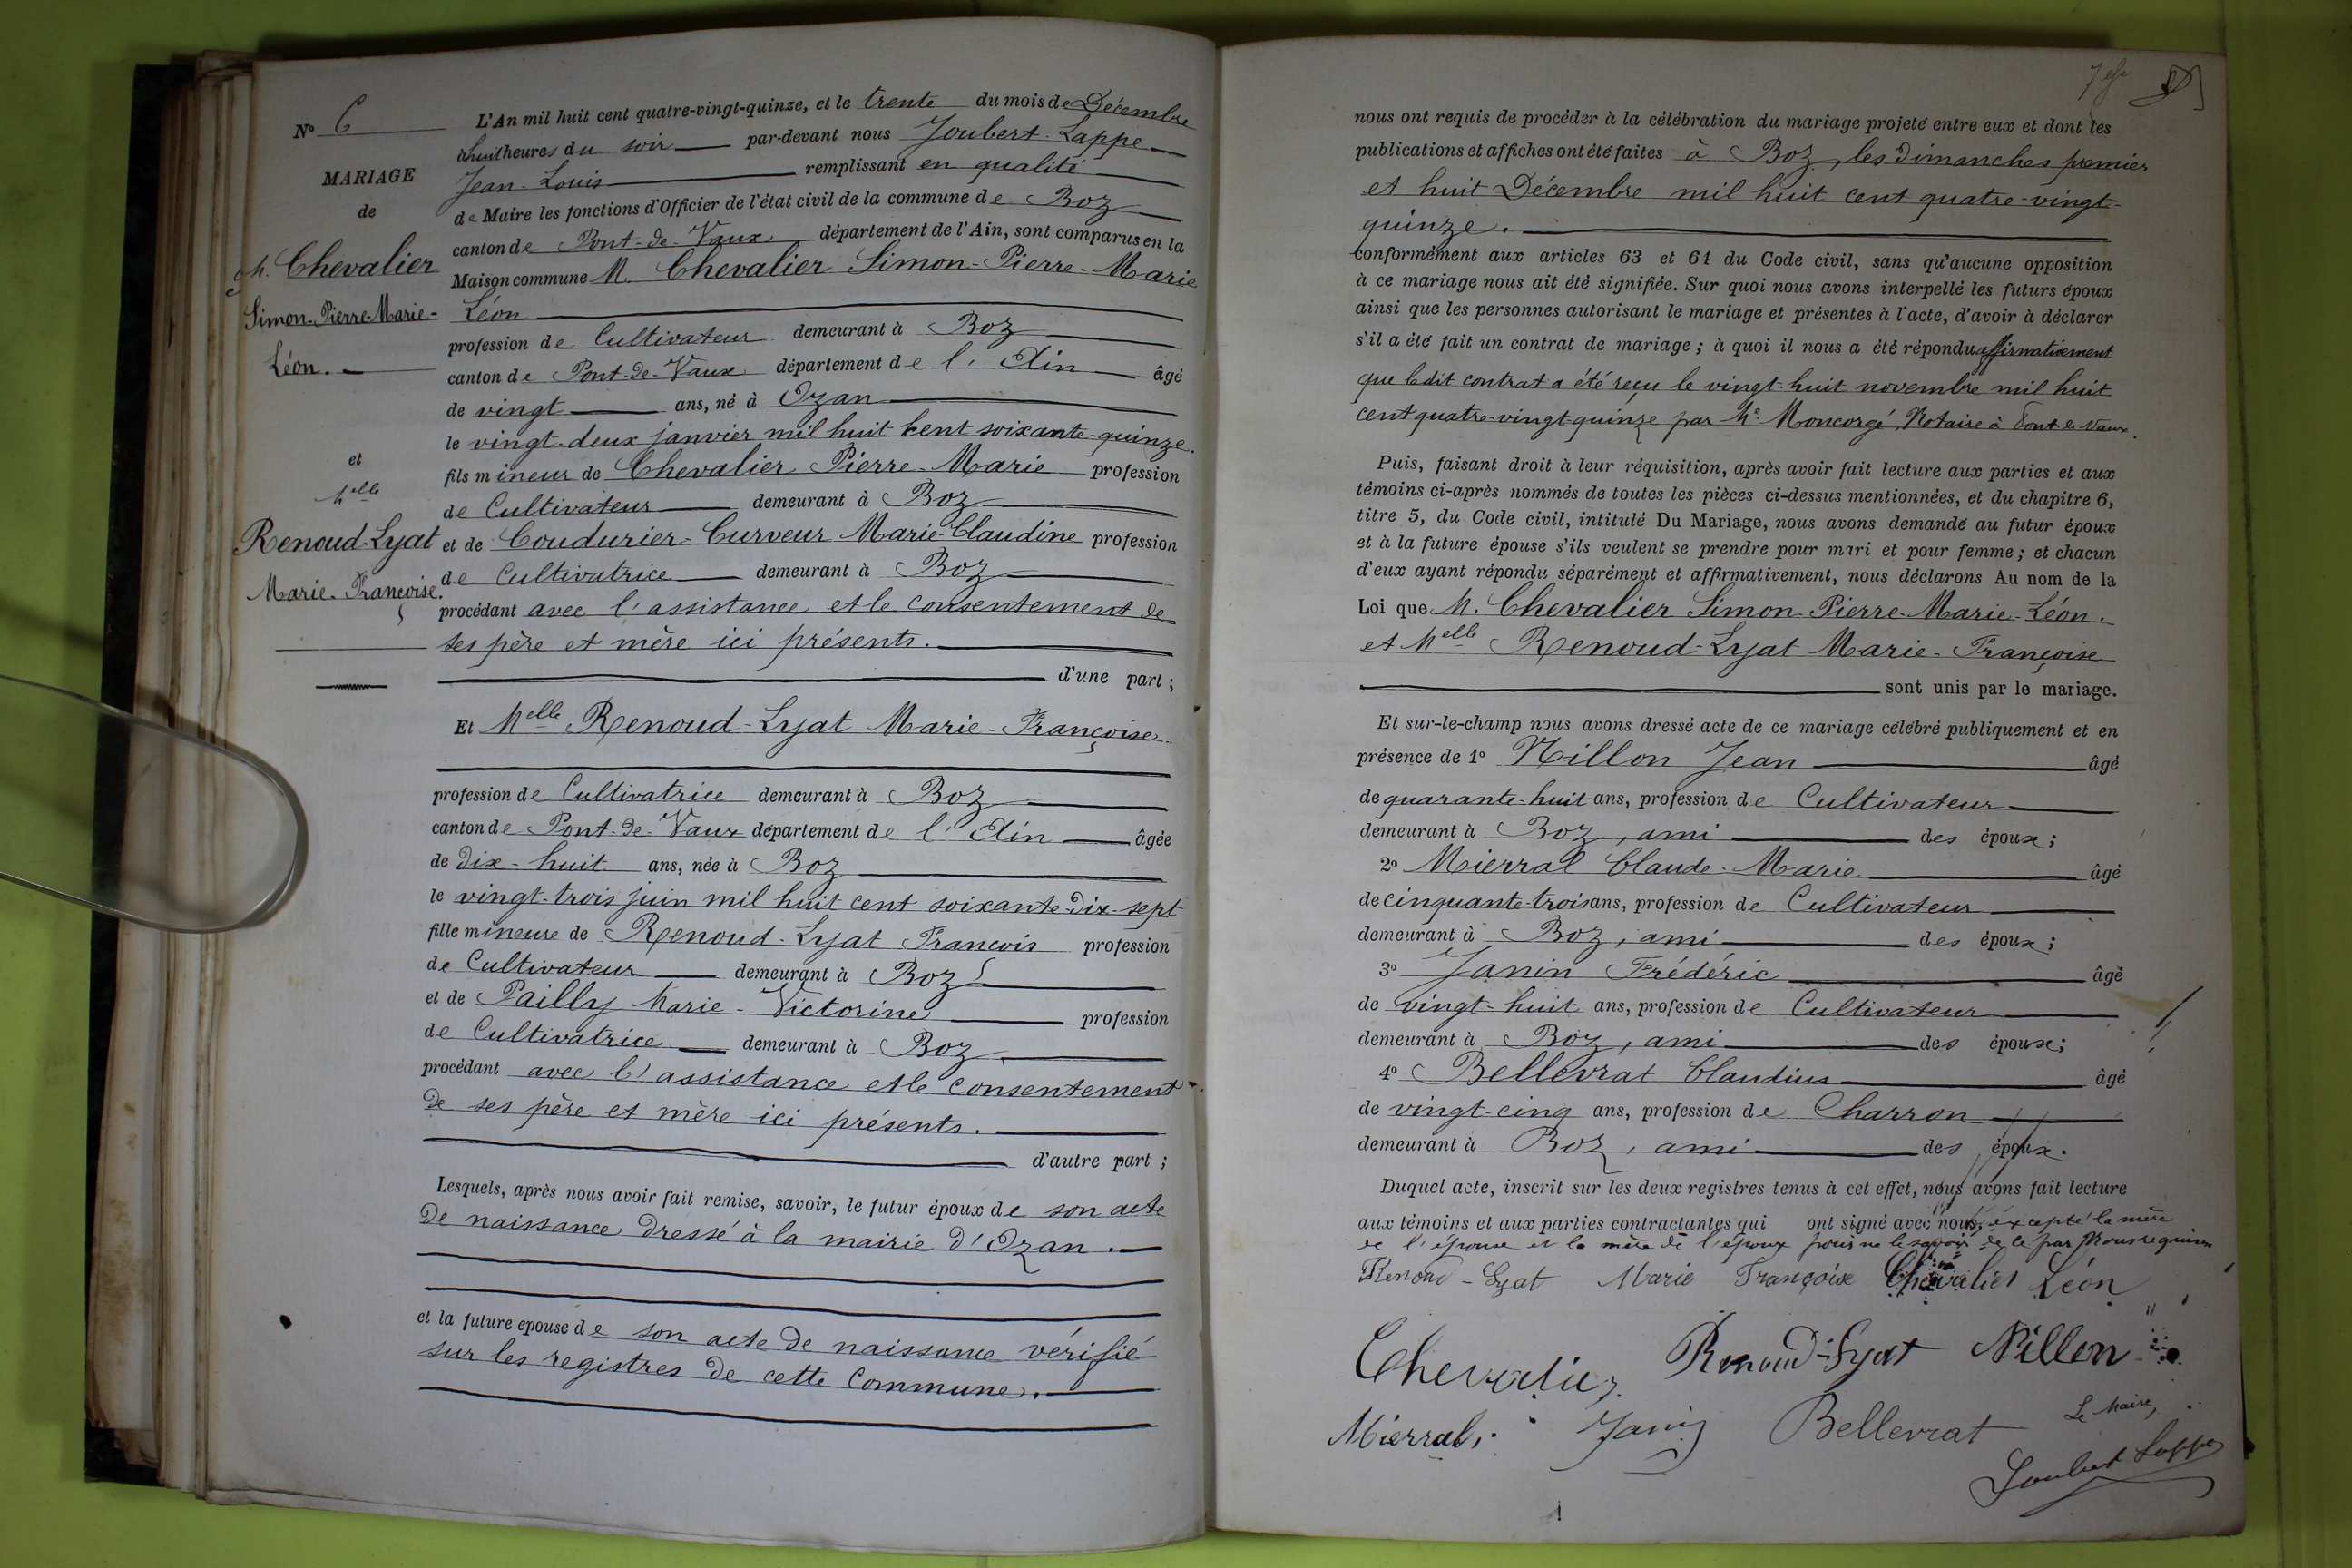 No 6
MARIAGE
de
M. Chevalier
Simon-Pierre-Marie-
Léon.
et
Melle
Renoud-Lyat
Marie-Françoise.
L'An mil huit cent quatre-vingt-quinze, et le trente du mois de Décembre
à huit heures du soir par-devant nous Joubert-Lappe
Jean-Louis remplissant en qualité
de Maire les fonctions d'Officier de l'état civil de la commune de Boz
canton de Pont-de-Vaux département de l'Ain, sont comparus en la
Maison commune M. Chevalier Simon-Pierre-Marie
Léon
profession de Cultivateur demeurant à Boz
canton de Pont-de-Vaux département de l'Ain âgé
de vingt ans, né à Ozan
le vingt-deux janvier mil huit cent soixante-quinze.
fils mineur de Chevalier Pierre-Marie profession
de Cultivateur demeurant à Boz
et de Coudurier-Curveur Marie-Claudine profession
de Cultivatrice demeurant à Boz
procédant avec l'assistance et le consentement de
ses père et mère ici présents.
d'une part;
Et Melle Renoud-Lyat Marie-Françoise
profession de Cultivatrice demeurant à Boz
canton de Pont-de-Vaux département de l'Ain âgée
de dix-huit ans, née à Boz
le vingt-trois juin mil huit cent soixante-dix-sept
fille mineure de Renoud-Lyat François profession
de Cultivateur demeurant à Boz
et de Pailly Marie-Victorine profession
de Cultivatrice demeurant à Boz
procédant avec l'assistance et le consentement
de ses père et mère ici présents.
d'autre part;
Lesquels, après nous avoir fait remise, savoir, le futur époux de son acte
de naissance dressé à la mairie d'Ozan.
et la future epouse de son acte de naissance vérifié
sur les registres de cette Commune.
nous ont requis de procéder à la célébration du mariage projeté entre eux et dont les
publications et affiches ont été faites à Boz, les dimanches premier
et huit Décembre mil huit cent quatre-vingt-
quinze.
conformément aux articles 63 et 64 du Code civil, sans qu'aucune opposition
à ce mariage nous ait été signifiée. Sur quoi nous avons interpellé les futurs époux
ainsi que les personnes autorisant le mariage et présentes à l'acte, d'avoir à déclarer
s'il a été fait un contrat de mariage; à quoi il nous a été répondu affirmativement
que ledit contrat a été reçu le vingt-huit novembre mil huit
cent quatre-vingt-quinze par Me Moncorgé, Notaire à Pont-de-Vaux.
Puis, faisant droit à leur réquisition, après avoir fait lecture aux parties et aux
témoins ci-après nommés de toutes les pièces ci-dessus mentionnées, et du chapitre 6,
titre 5, du Code civil, intitulé Du Mariage, nous avons demandé au futur époux
et à la future épouse s'ils veulent se prendre pour mari et pour femme; et chacun
d'eux ayant répondu séparément et affirmativement, nous déclarons Au nom de la
Loi que M. Chevalier Simon-Pierre-Marie-Léon.
et Melle Renoud-Lyat Marie-Françoise
sont unis par le mariage.
Et sur-le-champ nous avons dressé acte de ce mariage célébré publiquement et en
présence de 1o Nillon Jean âgé
de quarante-huit ans, profession de Cultivateur
demeurant à Boz, ami des époux;
2o Mierral Claude-Marie âgé
de cinquante-trois ans, profession de Cultivateur
demeurant à Boz, ami des époux;
3o Janin Frédéric âgé
de vingt-huit ans, profession de Cultivateur
demeurant à Boz, ami des époux;
4o Bellevrat Claudius âgé
de vingt-cinq ans, profession de Charron
demeurant à Boz, ami des époux.
Duquel acte, inscrit sur les deux registres tenus à cet effet, nous avons fait lecture
aux témoins et aux parties contractantes qui ont signé avec nous, excepté la mère
de l'épouse et la mère de l'époux pour ne le savoir de ce par nous requises
Renoud-Lyat Marie Françoise Chevalier Léon
Chevalier Renoud-Lyat Nillon
Mierral, Janin Bellevrat Le Maire,
Joubert Lappe